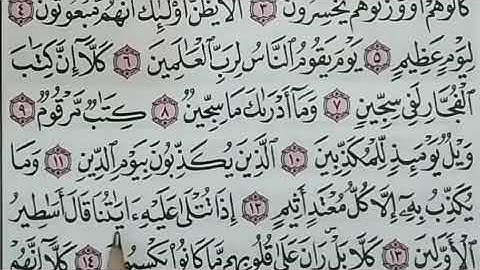 كَالُوهُمْ أَو وَّزَنُوهُمْ يُخْسِرُونَ ٣ أَلَا يَظُنُّ أُو۟لَٰٓئِكَ أَنَّهُم مَّبْعُوثُونَ ٤
لِيَوْمٍ عَظِيمٍ ٥ يَوْمَ يَقُومُ ٱلنَّاسُ لِرَبِّ ٱلْعَٰلَمِينَ ٦ كَلَّآ إِنَّ كِتَٰبَ
ٱلْفُجَّارِ لَفِى سِجِّينٍ ٧ وَمَآ أَدْرَىٰكَ مَا سِجِّينٌ ٨ كِتَٰبٌ مَّرْقُومٌ ٩
وَيْلٌ يَوْمَئِذٍ لِّلْمُكَذِّبِينَ ١٠ ٱلَّذِينَ يُكَذِّبُونَ بِيَوْمِ ٱلدِّينِ ١١ وَمَا
يُكَذِّبُ بِهِۦٓ إِلَّا كُلُّ مُعْتَدٍ أَثِيمٍ ١٢ إِذَا تُتْلَىٰ عَلَيْهِ ءَايَٰتُنَا قَالَ أَسَٰطِيرُ
ٱلْأَوَّلِينَ ١٣ كَلَّا بَلْ رَانَ عَلَىٰ قُلُوبِهِم مَّا كَانُوا۟ يَكْسِبُونَ ١٤ كَلَّآ إِنَّهُمْ